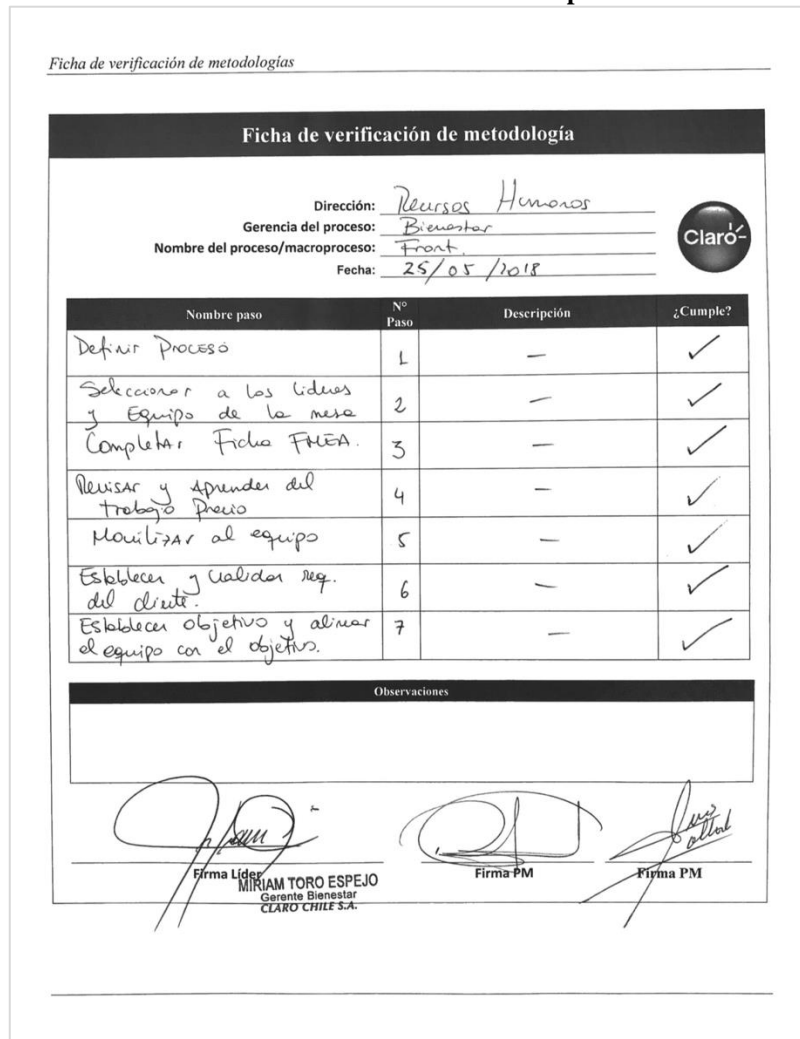 Ficha de verificación de metodologías
Ficha de verificación de metodología
Dirección: Recursos Humanos
Gerencia del proceso: Bienestar
Nombre del proceso/macroproceso: Front.
Fecha: 25/05/2018
Claro
Nombre paso N° Paso Descripción ¿Cumple?
Definir Proceso 1 — ✓
Seleccionar a los lideres
y Equipo de la mesa 2 — ✓
Completar Ficha FMEA. 3 — ✓
Revisar y Aprender del
trabajo Previo 4 — ✓
Movilizar al equipo 5 — ✓
Establecer y validar req.
del cliente. 6 — ✓
Establecer objetivo y alinear
el equipo con el objetivo. 7 — ✓
Observaciones
Firma Líder Firma PM Firma PM
MIRIAM TORO ESPEJO
Gerente Bienestar
CLARO CHILE S.A.